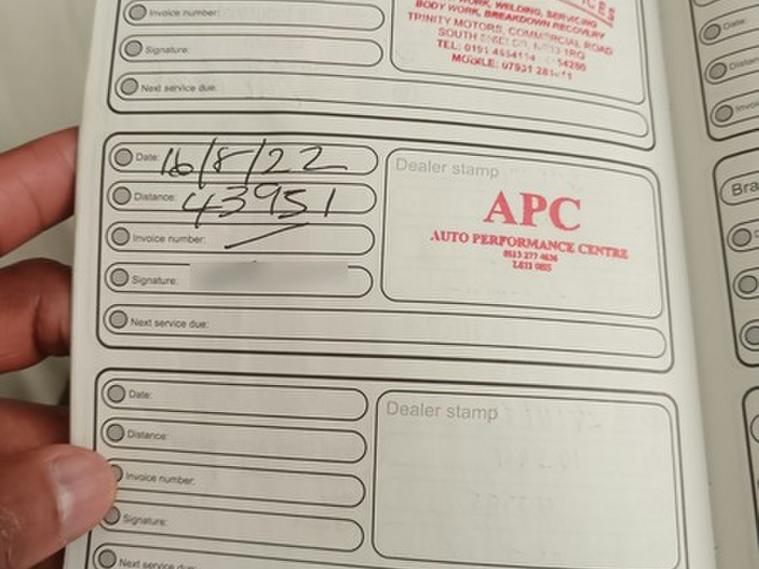 Invoice number:
Signature:
Next service due:
WORK, WELDING, SERVICING
BODY WORK, BREAKDOWN RECOVERY
TRINITY MOTORS, COMMERCIAL ROAD
SOUTH
TEL: 0191 4554114
MOBILE: 07931
Date: 16/8/22
Distance: 43951
Invoice number:
Signature:
Next service due:
Dealer stamp
APC
AUTO PERFORMANCE CENTRE
Date:
Distance:
Invoice number:
Signature:
Next service due:
Dealer stamp
Date:
Distan
Invoic
Bra